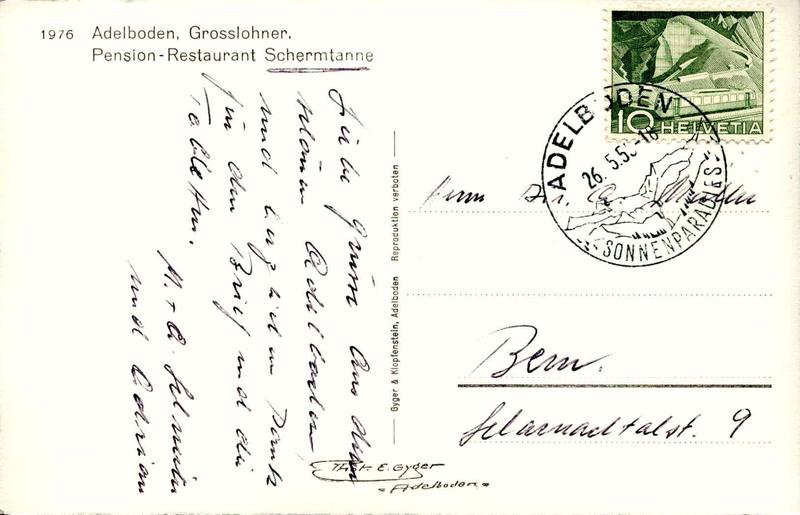 1976 Adelboden, Grosslohner.
Pension-Restaurant Schermtanne
Liebe Grüsse aus dem
schönen Adelboden
und herzlichen Dank
für den Brief und die
Tabletten.
M. + A.
und Adrian
Reproduktion verboten
Gyger & Klopfenstein, Adelboden
Phot. E. Gyger
Adelboden
10 HELVETIA
ADELBODEN
26.5.5 -18
SONNENPARADIES
Herrn Dir. Müller
Bern.
Scharnachtalst. 9